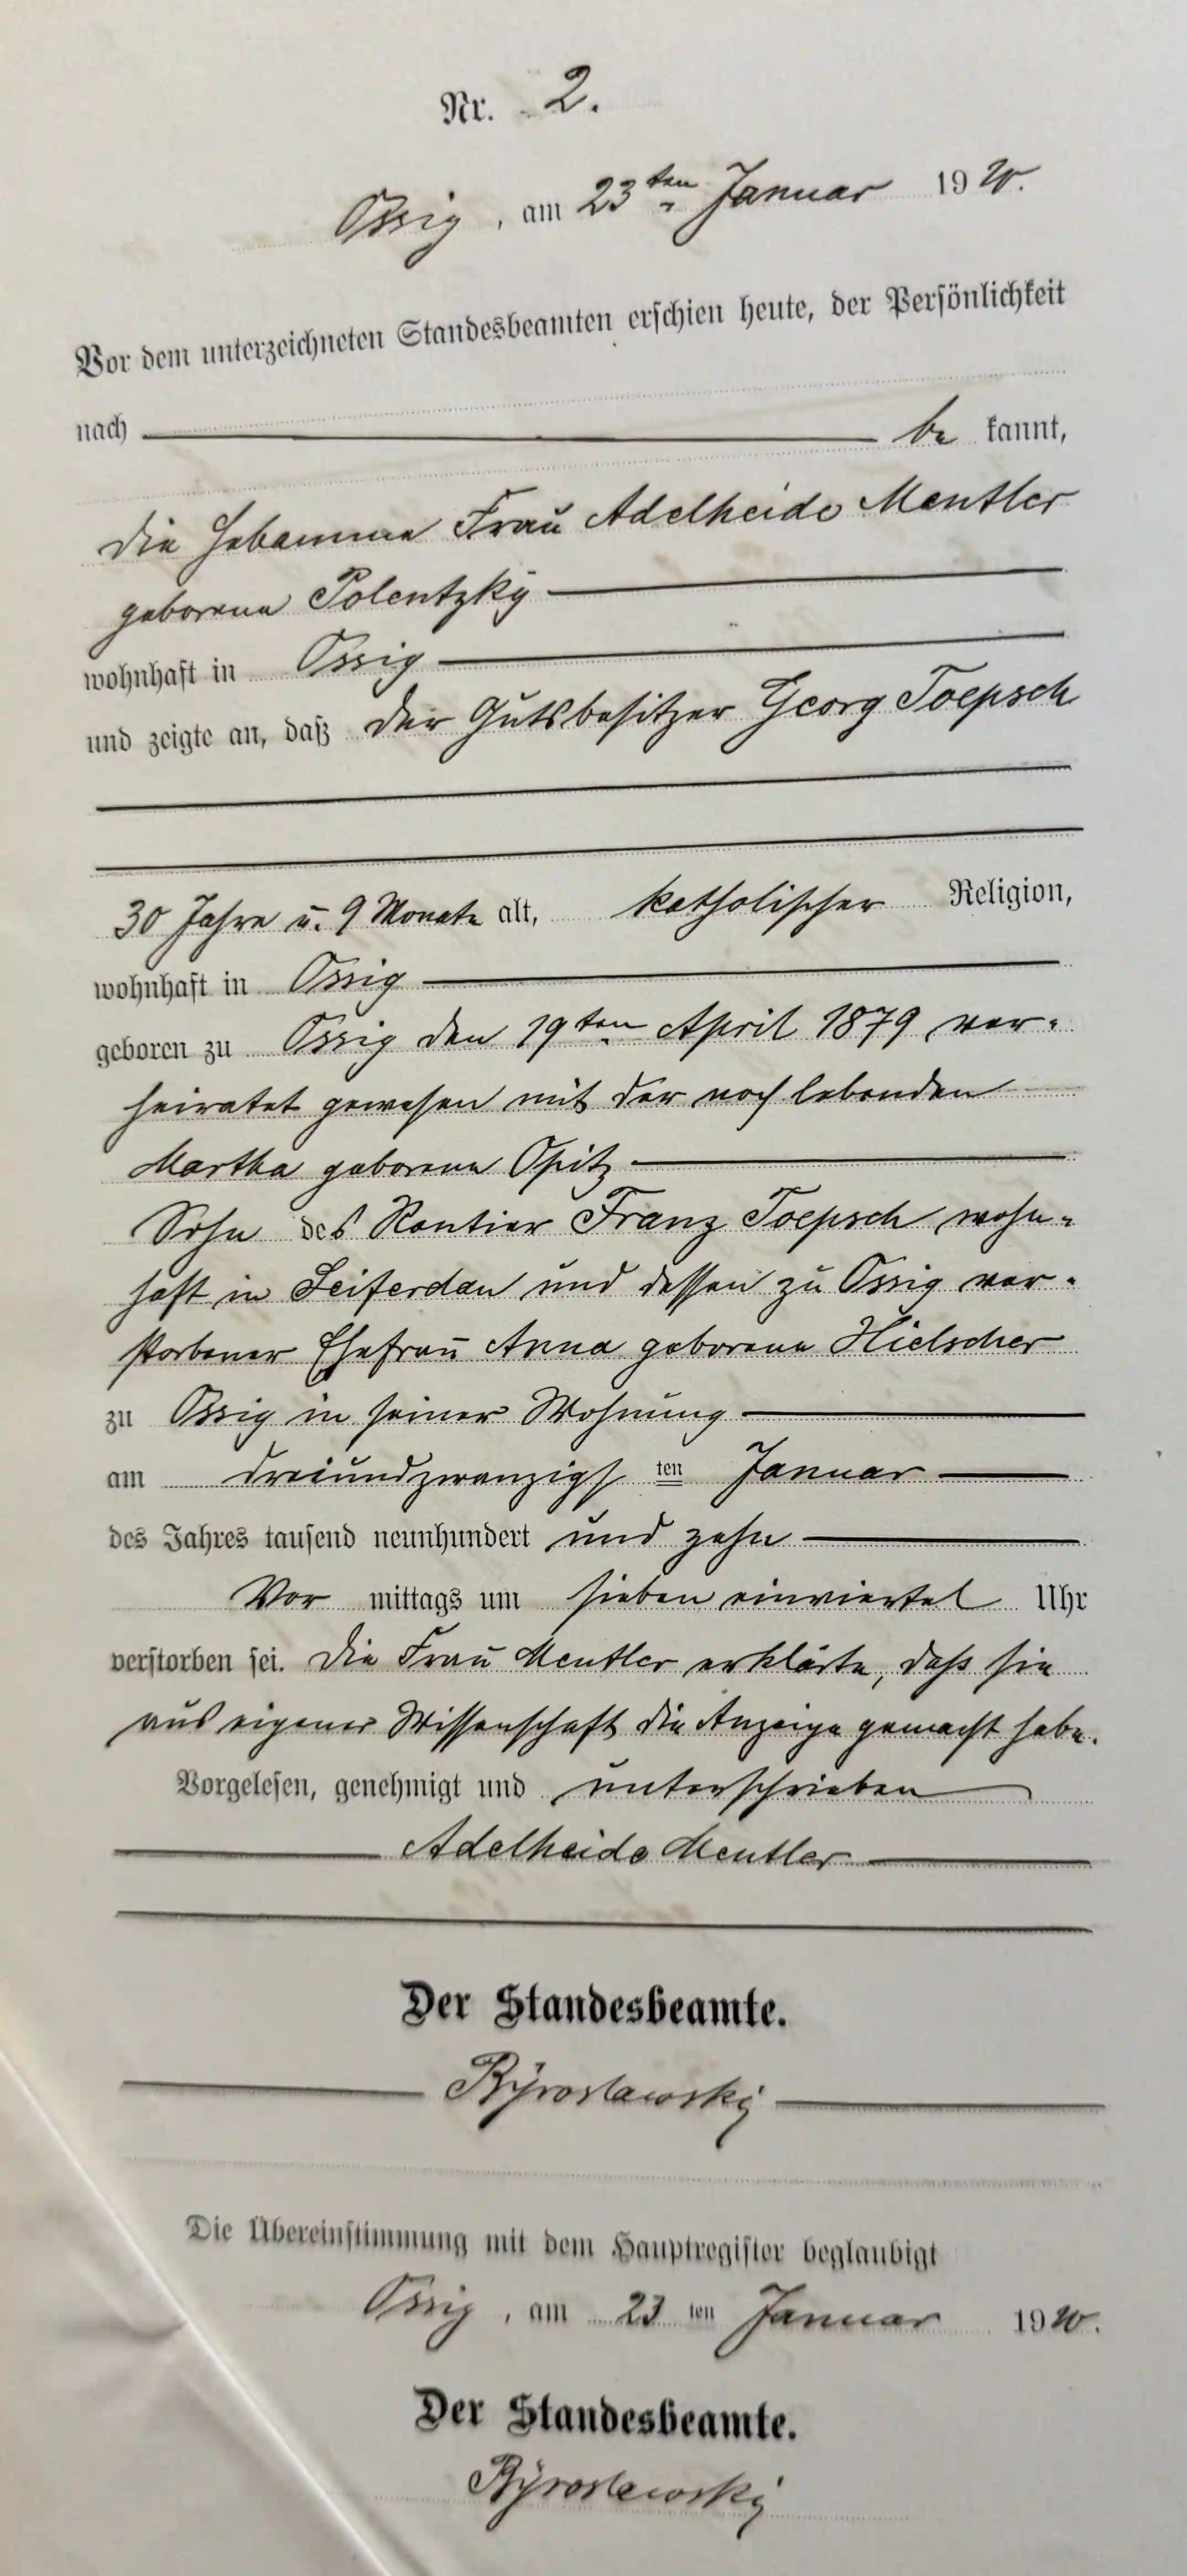 Nr. 2.
Ossig, am 23ten Januar 1910.
Vor dem unterzeichneten Standesbeamten erschien heute, der Persönlichkeit
nach be kannt,
die Hebamme Frau Adelheide Mentler
geborene Polentzky
wohnhaft in Ossig
und zeigte an, daß der Gutsbesitzer Georg Toepsch
30 Jahre u. 9 Monate alt, katholischer Religion,
wohnhaft in Ossig
geboren zu Ossig den 19ten April 1879 ver-
heiratet gewesen mit der noch lebenden
Martha geborene Opitz
Sohn des Rentier Franz Toepsch wohn-
haft in Seiferdau und dessen zu Ossig ver-
storbener Ehefrau Anna geborene Hielscher
zu Ossig in seiner Wohnung
am dreiundzwanzigsten Januar
des Jahres tausend neunhundert und zehn
Vor mittags um sieben einviertel Uhr
verstorben sei. Die Frau Mentler erklärte, daß sie
aus eigener Wissenschaft die Anzeige gemacht habe.
Vorgelesen, genehmigt und unterschrieben
Adelheide Mentler
Der Standesbeamte.
Die Übereinstimmung mit dem Hauptregister beglaubigt
Ossig, am 23 ten Januar 1910.
Der Standesbeamte.